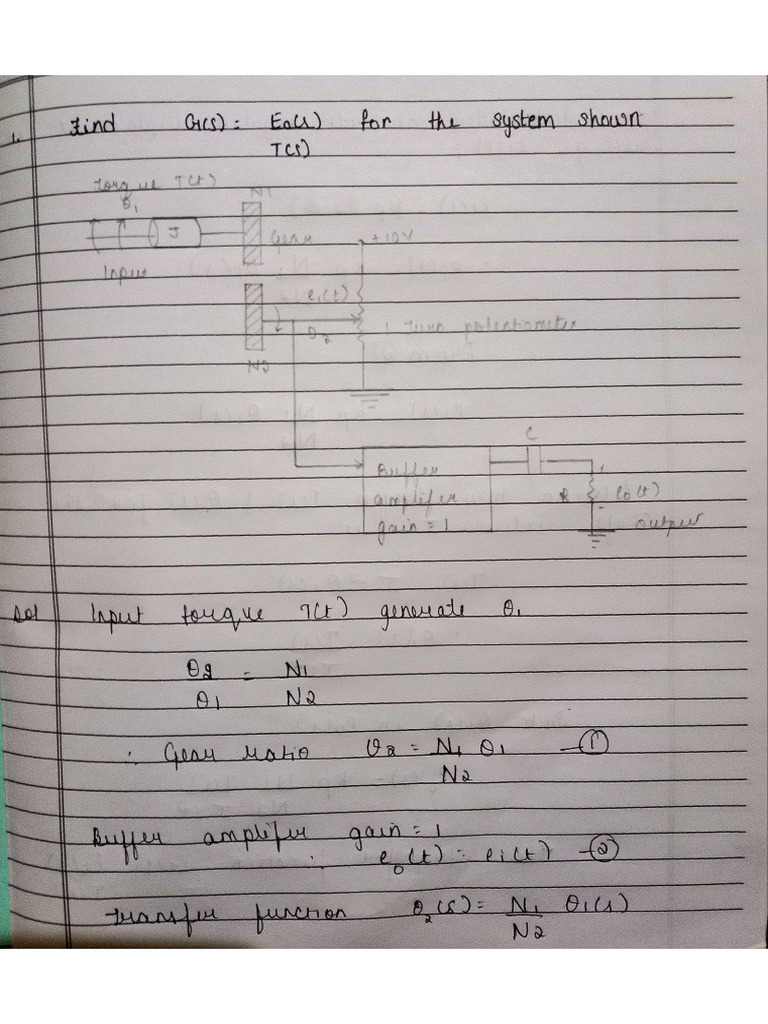 1. Find G(s) = Eo(s) for the system shown
T(s)
Torque T(t)
θ1
N1
J
Gear
+10V
Input
ei(t)
θ2
1 turn potentiometer
N2
C
Buffer
amplifer
gain = 1
R
eo(t)
output
Sol Input torque T(t) generate θ1
θ2 = N1
θ1 N2
∴ Gear ratio θ2 = N1 θ1 —①
N2
Buffer amplifer gain = 1
∴ eo(t) = ei(t) —②
Transfer function θ2(s) = N1 θ1(s)
N2